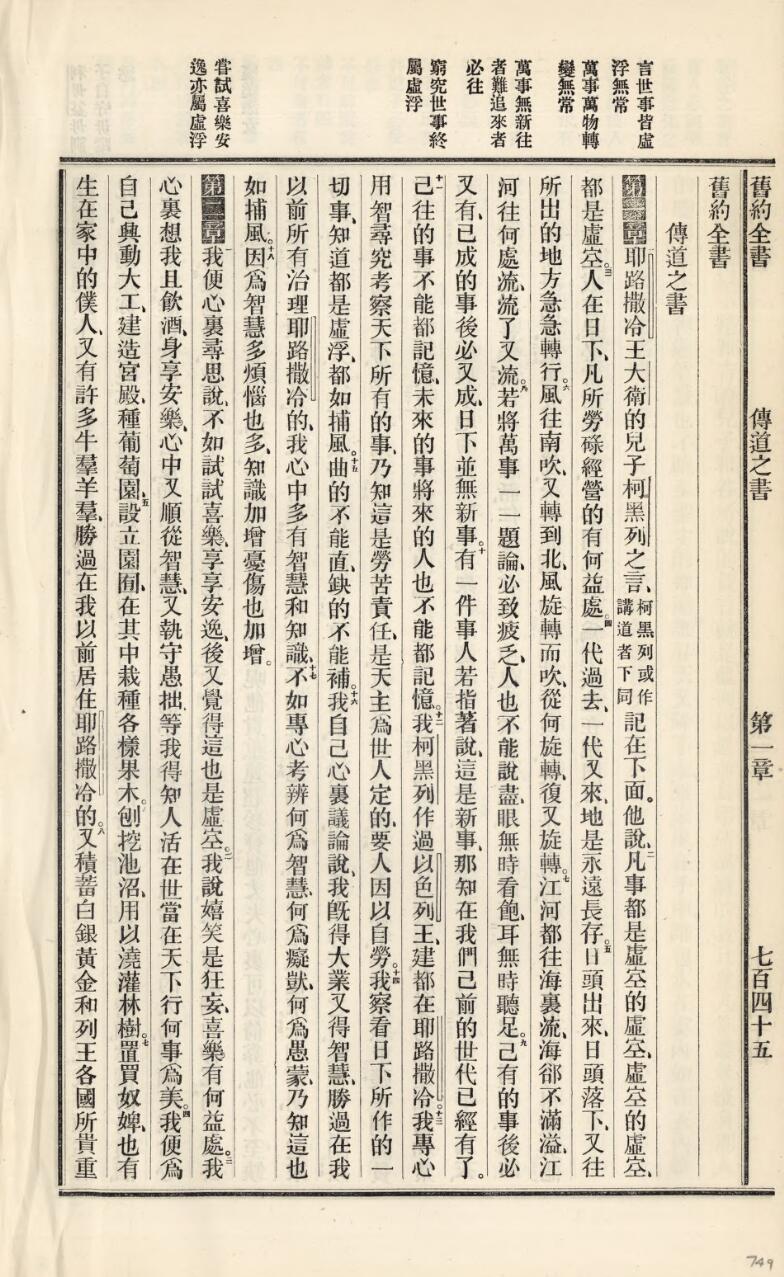 言世事皆虛
浮無常
萬事萬物轉
變無常
萬事無新往
者難追來者
必往
窮究世事終
屬虛浮
嘗試喜樂安
逸亦屬虛浮
舊約全書 傳道之書 第一章 七百四十五
舊約全書
傳道之書
第一章耶路撒冷王大衛的兒子柯黑列之言、柯黑列或作講道者下同記在下面。他說、二凡事都是虛空的虛空、虛空的虛空、
都是虛空。三人在日下、凡所勞碌經營的有何益處。四一代過去、一代又來、地是永遠長存。五日頭出來、日頭落下、又往
所出的地方急急轉行。六風往南吹、又轉到北、風旋轉而吹、從何旋轉、復又旋轉。七江河都往海裏流、海卻不滿溢、江
河往何處流、流了又流。八若將萬事一一題論、必致疲乏、人也不能說盡、眼無時看飽、耳無時聽足。九已有的事後必
又有、已成的事後必又成、日下並無新事。十有一件事人若指著說、這是新事、那知在我們已前的世代已經有了。
十一已往的事不能都記憶、未來的事將來的人也不能都記憶。十二我柯黑列作過以色列王、建都在耶路撒冷。十三我專心
用智尋究考察天下所有的事、乃知這是勞苦責任、是天主爲世人定的、要人因以自勞。十四我察看日下所作的一
切事、知道都是虛浮、都如捕風。十五曲的不能直、缺的不能補。十六我自己心裏議論說、我旣得大業又得智慧、勝過在我
以前所有治理耶路撒冷的、我心中多有智慧和知識。十七不如專心考辨何爲智慧、何爲癡獃、何爲愚蒙、乃知這也
如捕風。十八因爲智慧多煩惱也多、知識加增憂傷也加增。
第二章一我便心裏尋思說、不如試試喜樂、享享安逸、後又覺得這也是虛空。二我說嬉笑是狂妄、喜樂有何益處。三我
心裏想我且飲酒、身享安樂、心中又順從智慧、又執守愚拙、等我得知人活在世當在天下行何事爲美。四我便爲
自己興動大工、建造宮殿、種葡萄園、五設立園囿、在其中栽種各樣果木。六刨挖池沼、用以澆灌林樹。七置買奴婢、也有
生在家中的僕人、又有許多牛羣羊羣、勝過在我以前居住耶路撒冷的。八又積蓄白銀黃金和列王各國所貴重
749